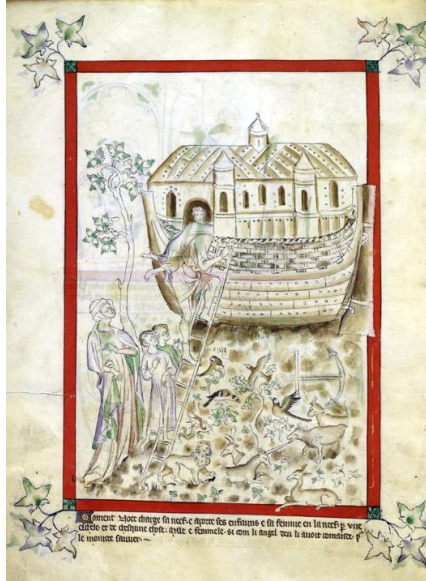 Coment Noee charge sa neef. e aporte ses enfauns e sa femme en la neef p vne
eschele et de chescune chose. malle e femmele. si com li angel deu li auoit comande. p
le mounde sauuer.